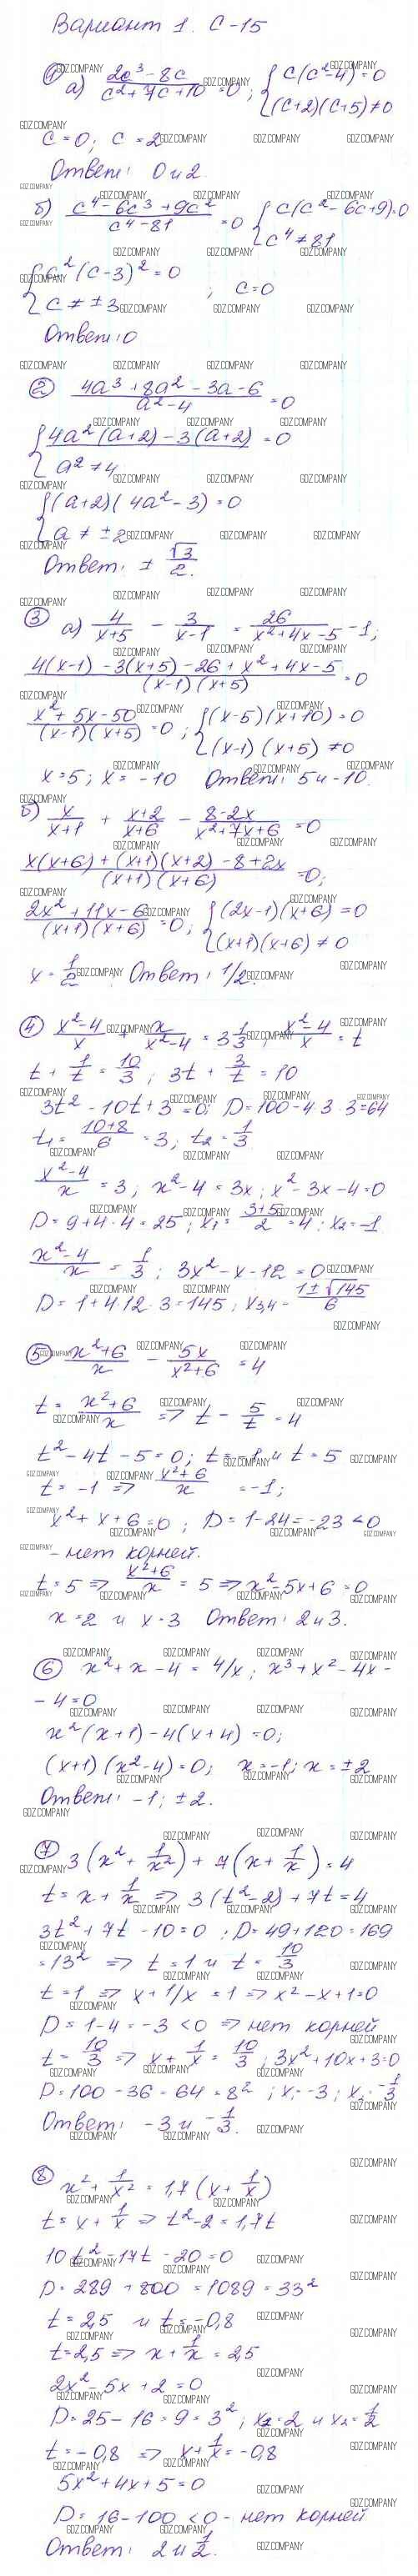 Вариант 1. С-15
① а) (2c³ - 8c)/(c² + 7c + 10) = 0; { c(c² - 4) = 0
(c+2)(c+5) ≠ 0
c = 0; c = 2
Ответ: 0 и 2.
б) (c⁴ - 6c³ + 9c²)/(c⁴ - 81) = 0 { c(c² - 6c + 9) = 0
c⁴ ≠ 81
{ c²(c-3)² = 0
c ≠ ±3 ; c = 0
Ответ: 0
② (4a³ + 8a² - 3a - 6)/(a² - 4) = 0
{ 4a²(a+2) - 3(a+2) = 0
a² ≠ 4
{ (a+2)(4a² - 3) = 0
a ≠ ±2
Ответ: ± √3/2.
③ а) 4/(x+5) - 3/(x-1) = 26/(x²+4x-5) - 1;
(4(x-1) - 3(x+5) - 26 + x² + 4x - 5)/((x-1)(x+5)) = 0
(x² + 5x - 50)/((x-1)(x+5)) = 0; { (x-5)(x+10) = 0
(x-1)(x+5) ≠ 0
x = 5; x = -10 Ответ: 5 и -10.
б) x/(x+1) + (x+2)/(x+6) - (8-2x)/(x²+7x+6) = 0
(x(x+6) + (x+1)(x+2) - 8 + 2x)/((x+1)(x+6)) = 0;
(2x² + 11x - 6)/((x+1)(x+6)) = 0; { (2x-1)(x+6) = 0
(x+1)(x+6) ≠ 0
x = 1/2 Ответ: 1/2.
④ (x²-4)/x + x/(x²-4) = 3 1/3; (x²-4)/x = t
t + 1/t = 10/3; 3t + 3/t = 10
3t² - 10t + 3 = 0; D = 100 - 4·3·3 = 64
t₁ = (10+8)/6 = 3; t₂ = 1/3
(x²-4)/x = 3; x² - 4 = 3x; x² - 3x - 4 = 0
D = 9 + 4·4 = 25; x₁ = (3+5)/2 = 4; x₂ = -1
(x²-4)/x = 1/3; 3x² - x - 12 = 0
D = 1 + 4·12·3 = 145; x₃,₄ = (1±√145)/6
⑤ (x²+6)/x - 5x/(x²+6) = 4
t = (x²+6)/x => t - 5/t = 4
t² - 4t - 5 = 0; t = -1 и t = 5
t = -1 => (x²+6)/x = -1;
x² + x + 6 = 0; D = 1 - 24 = -23 < 0
- нет корней.
t = 5 => (x²+6)/x = 5 => x² - 5x + 6 = 0
x = 2 и x = 3 Ответ: 2 и 3.
⑥ x² + x - 4 = 4/x; x³ + x² - 4x -
- 4 = 0
x²(x+1) - 4(x+4) = 0;
(x+1)(x²-4) = 0; x = -1; x = ±2
Ответ: -1; ±2.
⑦ 3(x² + 1/x²) + 7(x + 1/x) = 4
t = x + 1/x => 3(t²-2) + 7t = 4
3t² + 7t - 10 = 0; D = 49 + 120 = 169
= 13² => t = 1 и t = 10/3
t = 1 => x + 1/x = 1 => x² - x + 1 = 0
D = 1 - 4 = -3 < 0 => нет корней
t = 10/3 => x + 1/x = 10/3; 3x² + 10x + 3 = 0
D = 100 - 36 = 64 = 8²; x₁ = -3; x₂ = -1/3
Ответ: -3 и -1/3.
⑧ x² + 1/x² = 1,7(x + 1/x)
t = x + 1/x => t² - 2 = 1,7t
10t² - 17t - 20 = 0
D = 289 + 800 = 1089 = 33²
t = 2,5 и t = -0,8
t = 2,5 => x + 1/x = 2,5
2x² - 5x + 2 = 0
D = 25 - 16 = 9 = 3²; x₁ = 2 и x₂ = 1/2
t = -0,8 => x + 1/x = -0,8
5x² + 4x + 5 = 0
D = 16 - 100 < 0 - нет корней
Ответ: 2 и 1/2.
GDZ.COMPANY